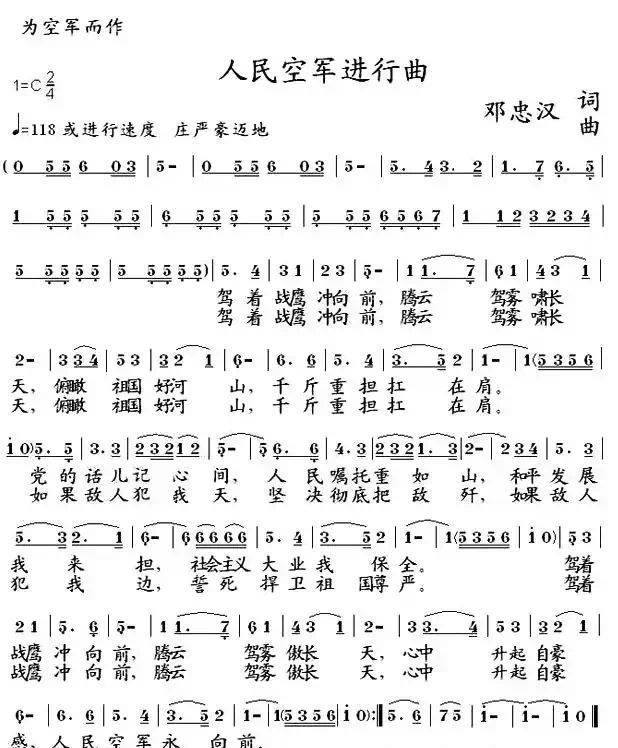 为空军而作
人民空军进行曲
1=C 2/4
邓忠汉 词曲
♩=118 或进行速度 庄严豪迈地
(0 5 5 6 0 3 | 5 - | 0 5 5 6 0 3 | 5 - | 5. 4 3. 2 | 1. 7 6. 5 |
1 5 5 5 5 5 | 6 5 5 5 5 5 | 5 5 5 6 5 6 7 | 1 1 2 3 2 3 4 |
5 5 5 5 5 | 5 5 5 5 5 ) | 5. 4 | 3 1 | 2 3 | 5 - | 1 1. 7 | 6 1 | 4 3 1 |
驾着 战鹰 冲向 前, 腾云 驾雾 啸长
驾着 战鹰 冲向 前, 腾云 驾雾 啸长
2 - | 3 3 4 | 5 3 | 3 2 1 | 6 - | 6. 6 | 5. 4 | 3. 5 2 | 1 - | 1 (5 3 5 6 |
天, 俯瞰 祖国 好河 山, 千斤重担扛 在肩。
天, 俯瞰 祖国 好河 山, 千斤重担扛 在肩。
1 0) 5. 5 | 3. 3 | 2 3 2 1 2 | 5 - | 5 6. 6 | 4. 3 | 2 3 2 1. 3 | 2 - | 2 5 4 | 5. 3 |
党的话儿记心间, 人民嘱托重如山, 和平发展
如果敌人犯我天, 坚决彻底把敌歼, 如果敌人
5. 3 2. 1 | 6 - | 6 6 6 6 6 | 5. 4 | 3. 5 2 | 1 - | 1 (5 3 5 6 | 1 0) | 5 3 |
我来担, 社会主义大业我保全。 驾着
犯我边, 誓死捍卫祖国尊严。 驾着
2 1 | 5. 6 | 5 - | 1 1. 7 | 6 1 | 4 3 1 | 2 - | 3 3. 4 | 5 3 | 3 2 1 |
战鹰冲向前, 腾云 驾雾 傲长 天, 心中 升起 自豪
战鹰冲向前, 腾云 驾雾 傲长 天, 心中 升起 自豪
6 - | 6. 6 | 5. 4 | 3. 5 2 | 1 - | 1 (5 3 5 6 | 1 0) :‖ 5. 6 | 7 5 | 1 - | 1 - | 1 0 ‖
感, 人民空军永 向前.